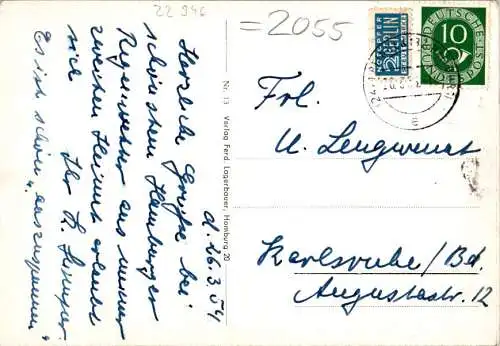 22 946
= 2055
d. 26.3.54
Herzliche Grüße bei
schönstem Hamburger
Regenwetter aus unserer
zweiten Heimat erlaubt
sich Ihr
Es ist schön "auszuspannen"
Nr. 13 Verlag Ferd. Lagerbauer, Hamburg 20
NOTOPFER
2 BERLIN
STEUERMARKE
DEUTSCHE
10
BUNDESPOST
Frl.
U. Lengwenat
Karlsruhe/Bd.
Augustastr. 12